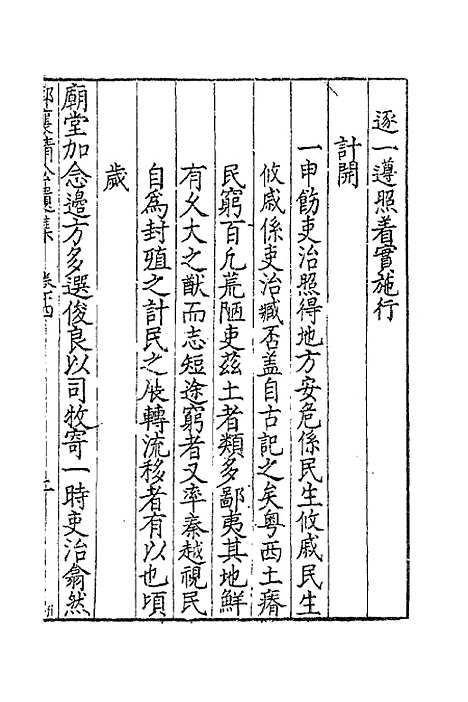 逐一遵照着實施行
計開
一申飭吏治照得地方安危係民生攸戚民生
攸戚係吏治臧否盖自古記之矣粤西土瘠
民窮百凡荒陋吏茲土者類多鄙夷其地鮮
有久大之猷而志短途窮者又率秦越視民
自為封殖之計民之展轉流移者有以也頃
歲
廟堂加念邉方多選俊良以司牧寄一時吏治翕然